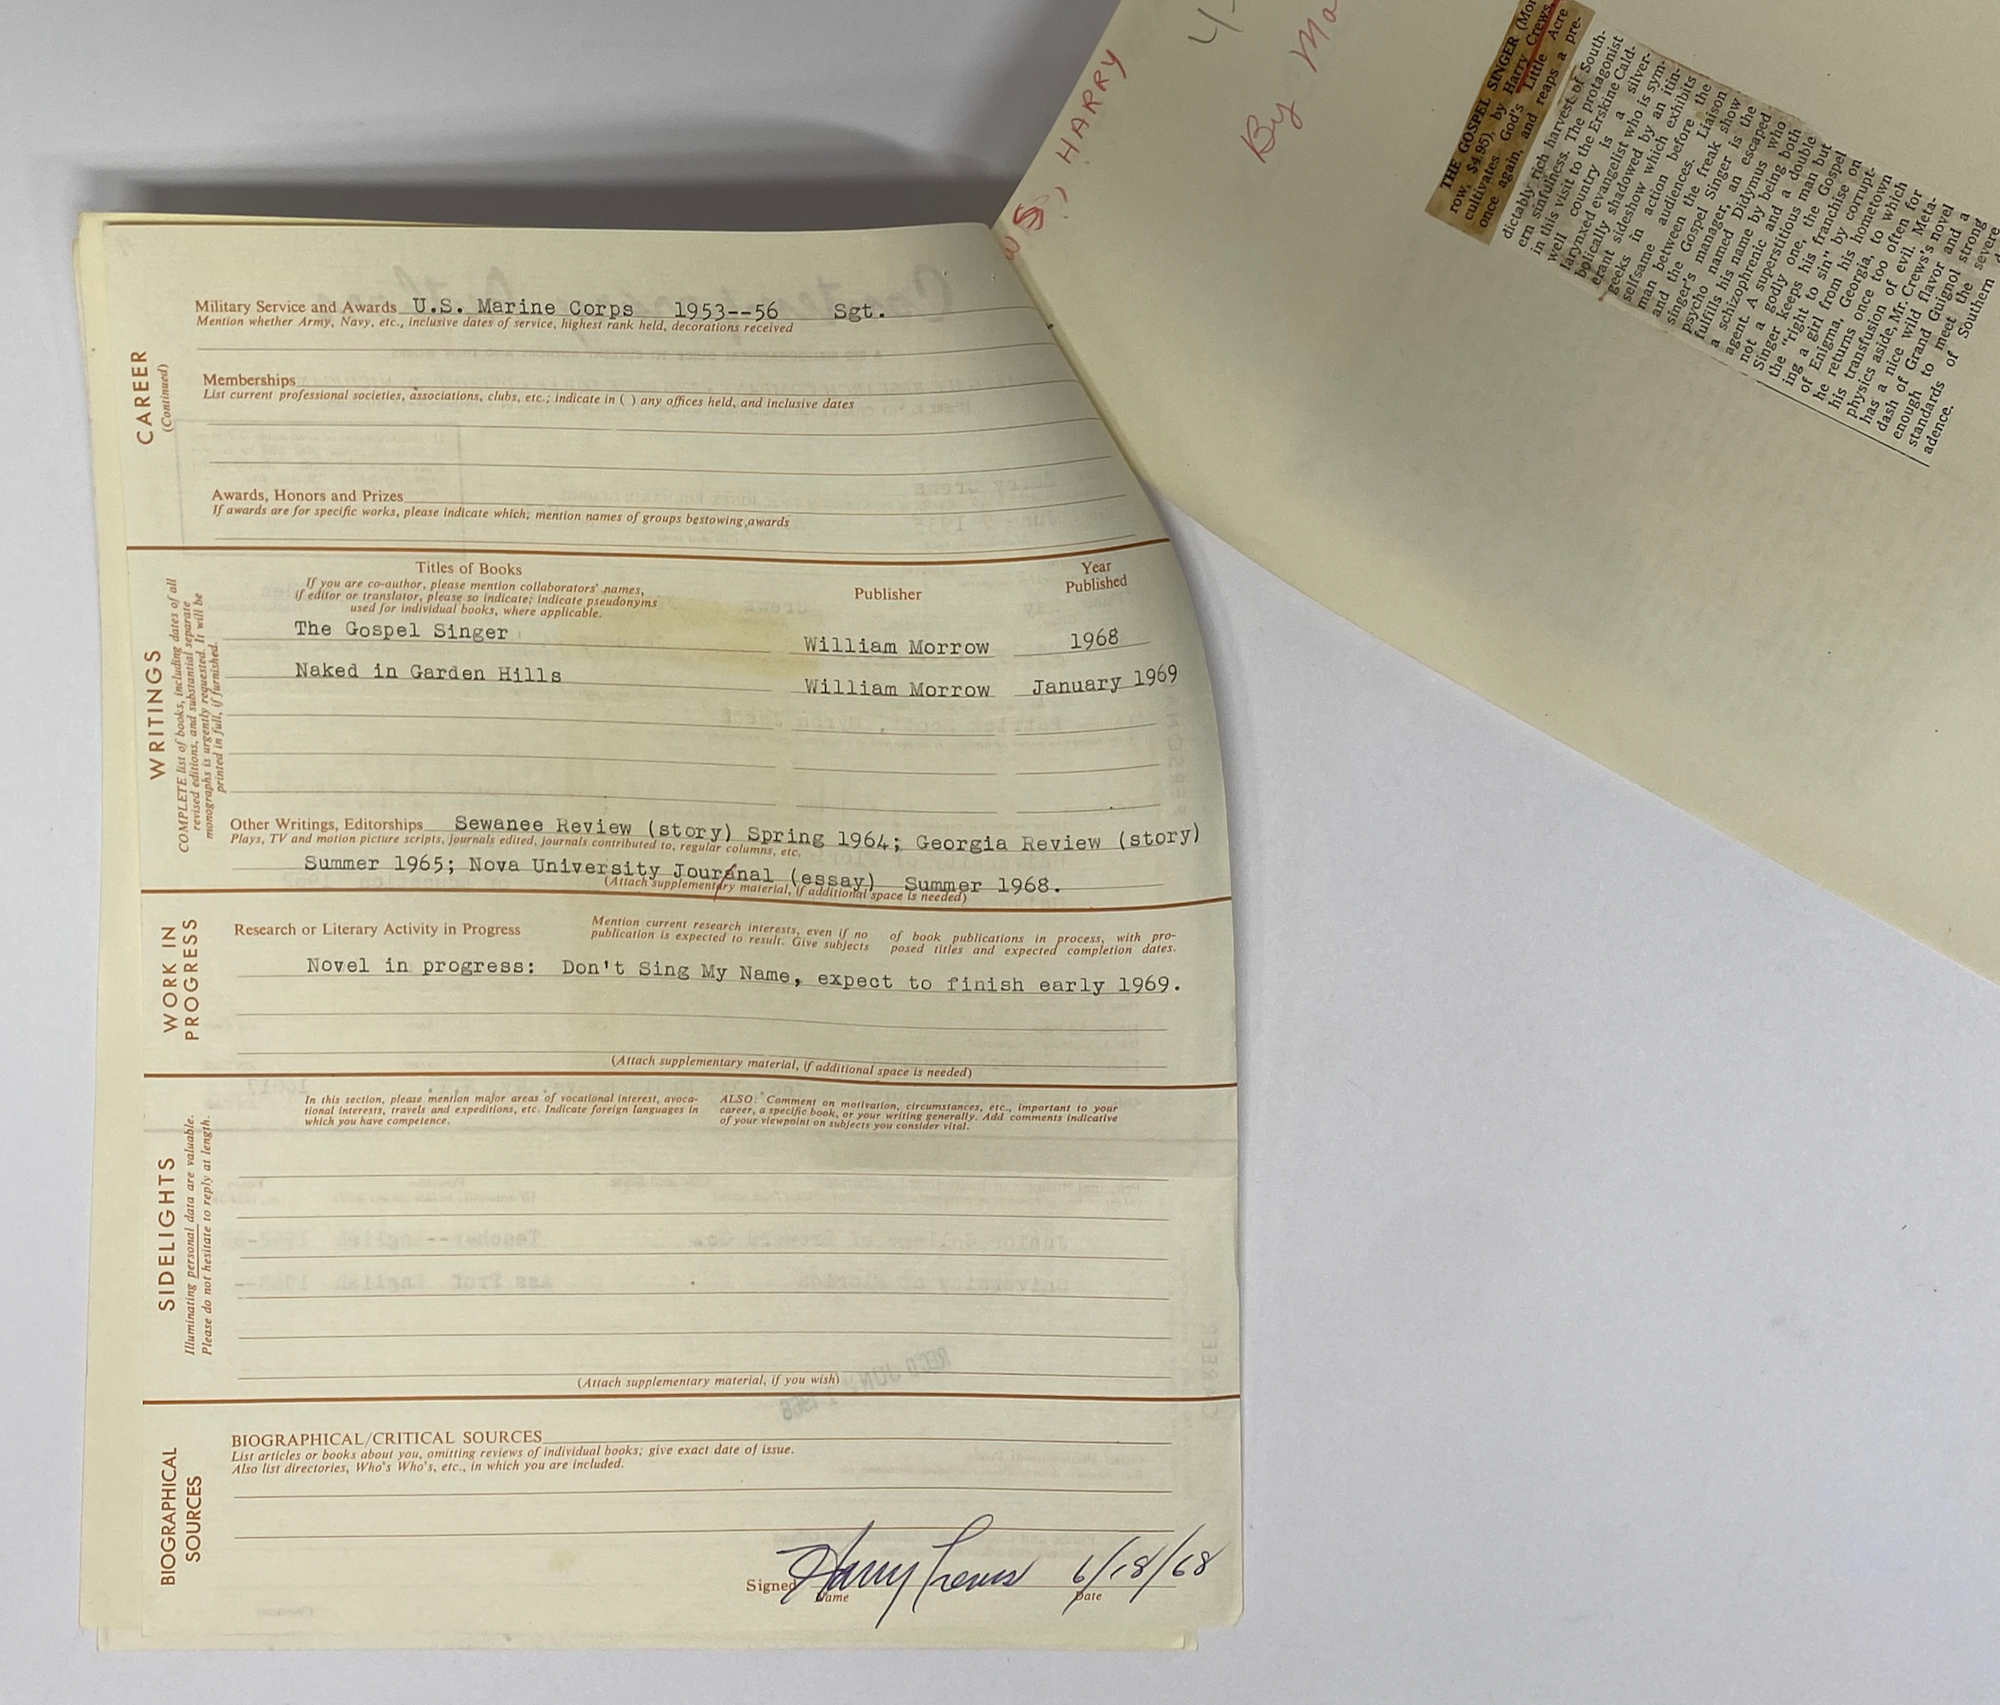 CAREER
(Continued)
Military Service and Awards U.S. Marine Corps 1953--56 Sgt.
Mention whether Army, Navy, etc., inclusive dates of service, highest rank held, decorations received
Memberships
List current professional societies, associations, clubs, etc.; indicate in ( ) any offices held, and inclusive dates
Awards, Honors and Prizes
If awards are for specific works, please indicate which; mention names of groups bestowing awards
WRITINGS
COMPLETE list of books, including dates of all
revised editions, and substantial separate
monographs is urgently requested. It will be
printed in full, if furnished.
Titles of Books
If you are co-author, please mention collaborators' names,
if editor or translator, please so indicate; indicate pseudonyms
used for individual books, where applicable.
Publisher
Year
Published
The Gospel Singer William Morrow 1968
Naked in Garden Hills William Morrow January 1969
Other Writings, Editorships Sewanee Review (story) Spring 1964; Georgia Review (story)
Plays, TV and motion picture scripts, journals edited, journals contributed to, regular columns, etc.
Summer 1965; Nova University Journal (essay) Summer 1968.
(Attach supplementary material, if additional space is needed)
WORK IN
PROGRESS
Research or Literary Activity in Progress
Mention current research interests, even if no
publication is expected to result. Give subjects
of book publications in process, with pro-
posed titles and expected completion dates.
Novel in progress: Don't Sing My Name, expect to finish early 1969.
(Attach supplementary material, if additional space is needed)
SIDELIGHTS
Illuminating personal data are valuable.
Please do not hesitate to reply at length.
In this section, please mention major areas of vocational interest, avoca-
tional interests, travels and expeditions, etc. Indicate foreign languages in
which you have competence.
ALSO: Comment on motivation, circumstances, etc., important to your
career, a specific book, or your writing generally. Add comments indicative
of your viewpoint on subjects you consider vital.
(Attach supplementary material, if you wish)
BIOGRAPHICAL
SOURCES
BIOGRAPHICAL/CRITICAL SOURCES
List articles or books about you, omitting reviews of individual books; give exact date of issue.
Also list directories, Who's Who's, etc., in which you are included.
Signed Harry Crews 6/18/68
Name Date
WS, HARRY
4-
By Mo
THE GOSPEL SINGER (Mor-
row, $4.95), by Harry Crews,
cultivates God's Little Acre
once again, and reaps a pre-
dictably rich harvest of South-
ern sinfulness. The protagonist
in this visit to the Erskine Cald-
well country is a silver-
larynxed evangelist who is sym-
bolically shadowed by an itin-
erant sideshow which exhibits
geeks in action before the
selfsame audiences. Liaison
man between the freak show
and the Gospel Singer is the
singer's manager, an escaped
psycho named Didymus who
fulfils his name by being both
a schizophrenic and a double
agent. A superstitious man but
not a godly one, the Gospel
Singer keeps his franchise on
the "right to sin" by corrupt-
ing a girl from his hometown
of Enigma, Georgia, to which
he returns once too often for
his transfusion of evil. Meta-
physics aside, Mr. Crews's novel
has a nice wild flavor and a
dash of Grand Guignol strong
enough to meet the severe
standards of Southern
adence.